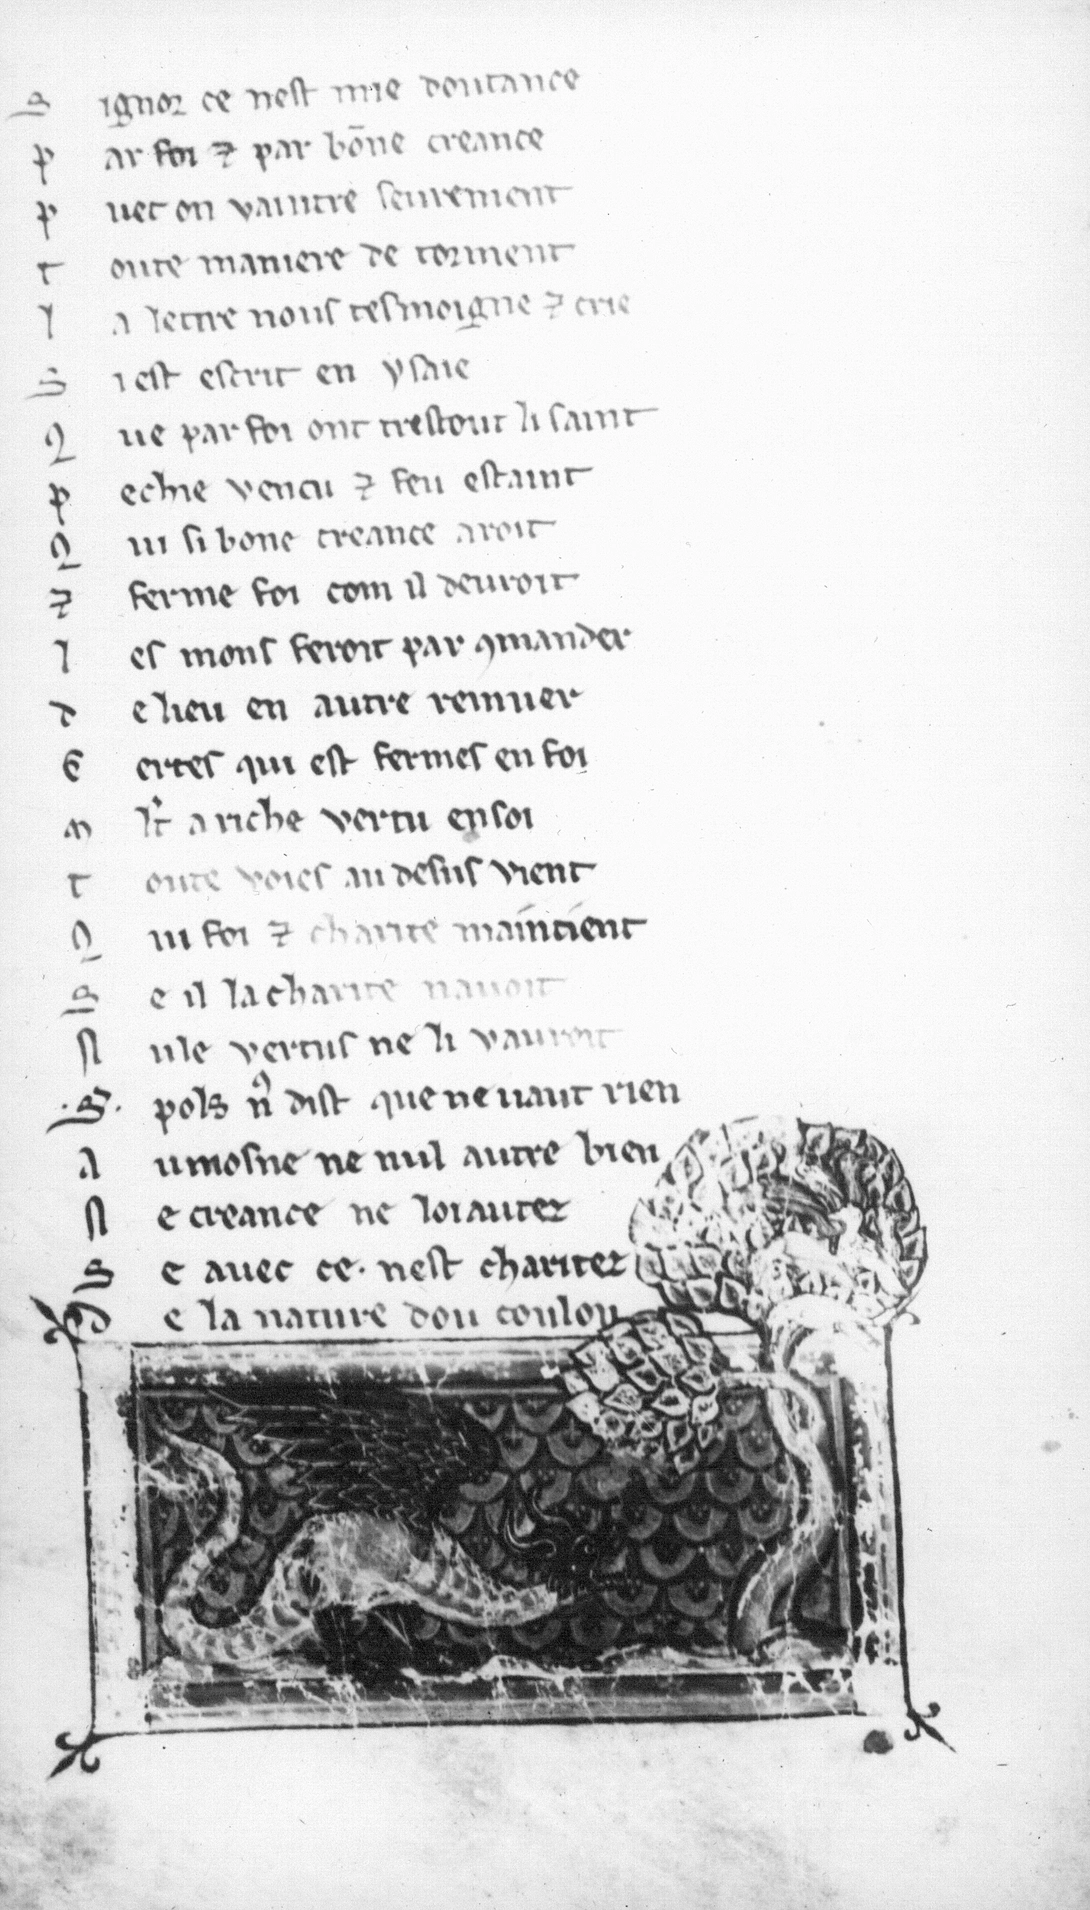 S ignor ce nest mie doutance
P ar foi ⁊ par bōne creance
P uet on vaintre seurement
T oute maniere de torment
L a lettre nous tesmoigne ⁊ crie
S i est escrit en ysaie
Q ue par foi ont trestout li saint
P echie vencu ⁊ feu estaint
Q ui si bone creance aroit
⁊ ferme foi com il deuroit
L es mons feroit par ꝯmander
D e lieu en autre remuer
C ertes qui est fermes en foi
M lt̄ a riche vertu en soi
T oute voies au desus vient
Q ui foi ⁊ charite maintient
S e il la charite nauoit
N ule vertus ne li vauroit
·S· pols nꝰ dist que ne uaut rien
A umosne ne nul autre bien
N e creance ne loiautez
S e auec ce· nest charitez
D e la nature dou coulon